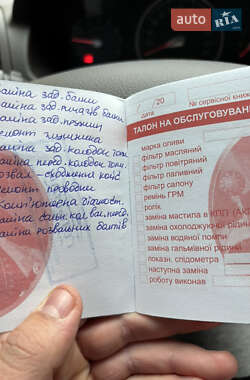 AUTO RIA.com
заміна зад. балки
заміна зад.
заміна зад. пружин
ремонт глушника
заміна зад. колодок гальм.
заміна перед. колодок гальм.
розвал - сходження коліс
ремонт проводки
Комп'ютерна діагност.
заміна
заміна розвальних болтів
/20
дата
№ сервісної книж
ТАЛОН НА ОБСЛУГОВУВАН
марка оливи
фільтр масляний
фільтр повітряний
фільтр паливний
фільтр салону
ремінь ГРМ
ролік
заміна мастила в КПП (АК
заміна охолоджуючої рідин
заміна водяної помпи
заміна гальмівної рідини
показн. спідометра
наступна заміна
роботу виконав